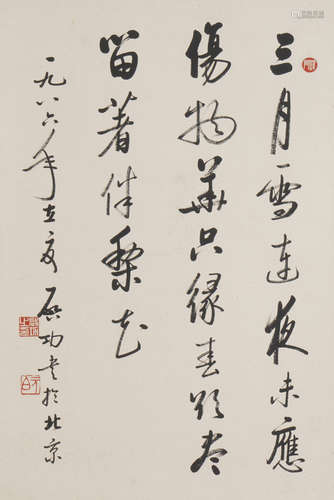 三月雪連夜未應
傷物華只緣春欲盡
留著伴梨花
一九八六年立夏啟功書於北京